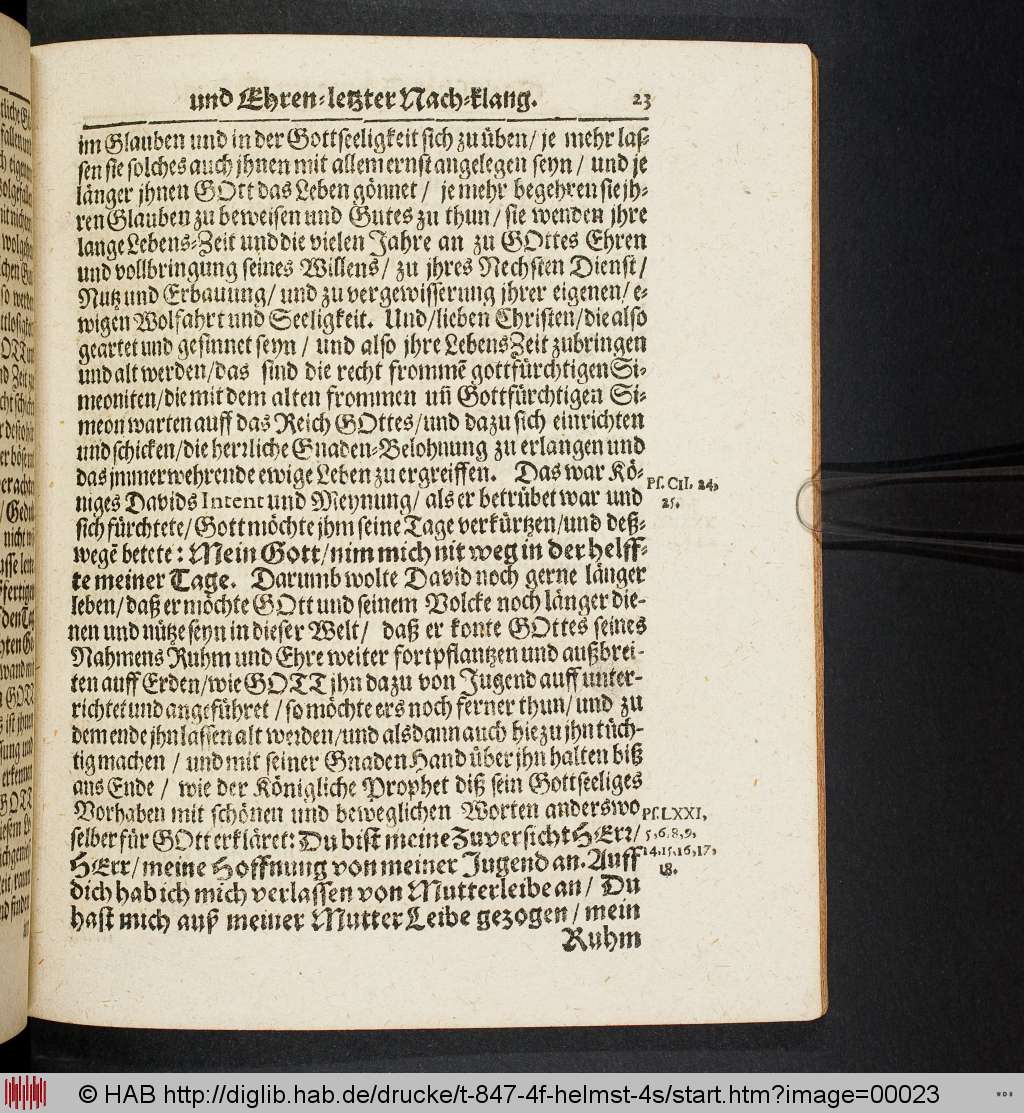 und Ehren-letzter Nach-klang. 23
im Glauben und in der Gottseeligkeit sich zu üben/ je mehr las-
sen sie solches auch jhnen mit allem ernst angelegen seyn / und je
länger jhnen GOtt das Leben gönnet / je mehr begehren sie jh-
ren Glauben zu beweisen und Gutes zu thun / sie wenden jhre
lange Lebens-Zeit und die vielen Jahre an zu GOttes Ehren
und vollbringung seines Willens/ zu jhres Nechsten Dienst/
Nutz und Erbauung/ und zu vergewisserung jhrer eigenen/ e-
wigen Wolfahrt und Seeligkeit. Und/lieben Christen/die also
geartet und gesinnet seyn / und also jhre LebensZeit zubringen
und alt werden/das sind die recht from̃ẽ gottfürchtigen Si-
meoniten/die mit dem alten frommen uñ Gottfürchtigen Si-
meon warten auff das Reich GOttes/und dazu sich einrichten
und schicken/die herrliche Gnaden-Belohnung zu erlangen und
das jmmerwehrende ewige Leben zu ergreiffen. Das war Kö-
niges Davids Intent und Meynung/ als er betrübet war und
Ps. CII. 24,
25.
sich fürchtete/Gott möchte jhm seine Tage verkürtzen/und deß-
wegẽ betete: Mein Gott/nim mich nit weg in der helff-
te meiner Tage. Darumb wolte David noch gerne länger
leben/daß er möchte GOtt und seinem Volcke noch länger die-
nen und nütze seyn in dieser Welt/ daß er konte GOttes seines
Nahmens Ruhm und Ehre weiter fortpflantzen und außbrei-
ten auff Erden/wie GOTT jhn dazu von Jugend auff unter-
richtet und angeführet / so möchte ers noch ferner thun/ und zu
dem ende jhn lassen alt werden/und alsdann auch hiezu jhn tüch-
tig machen / und mit seiner Gnaden Hand über jhn halten biß
ans Ende / wie der Königliche Prophet diß sein Gottseeliges
Vorhaben mit schönen und beweglichen Worten anderswo
Ps. LXXI,
5, 6. 8, 9,
14, 15, 16, 17,
18.
selber für GOtt erkläret: Du bist meine Zuversicht HErr/
HErr/ meine Hoffnung von meiner Jugend an. Auff
dich hab ich mich verlassen von Mutterleibe an/ Du
hast mich auß meiner Mutter Leibe gezogen / mein
Ruhm
© HAB http://diglib.hab.de/drucke/t-847-4f-helmst-4s/start.htm?image=00023